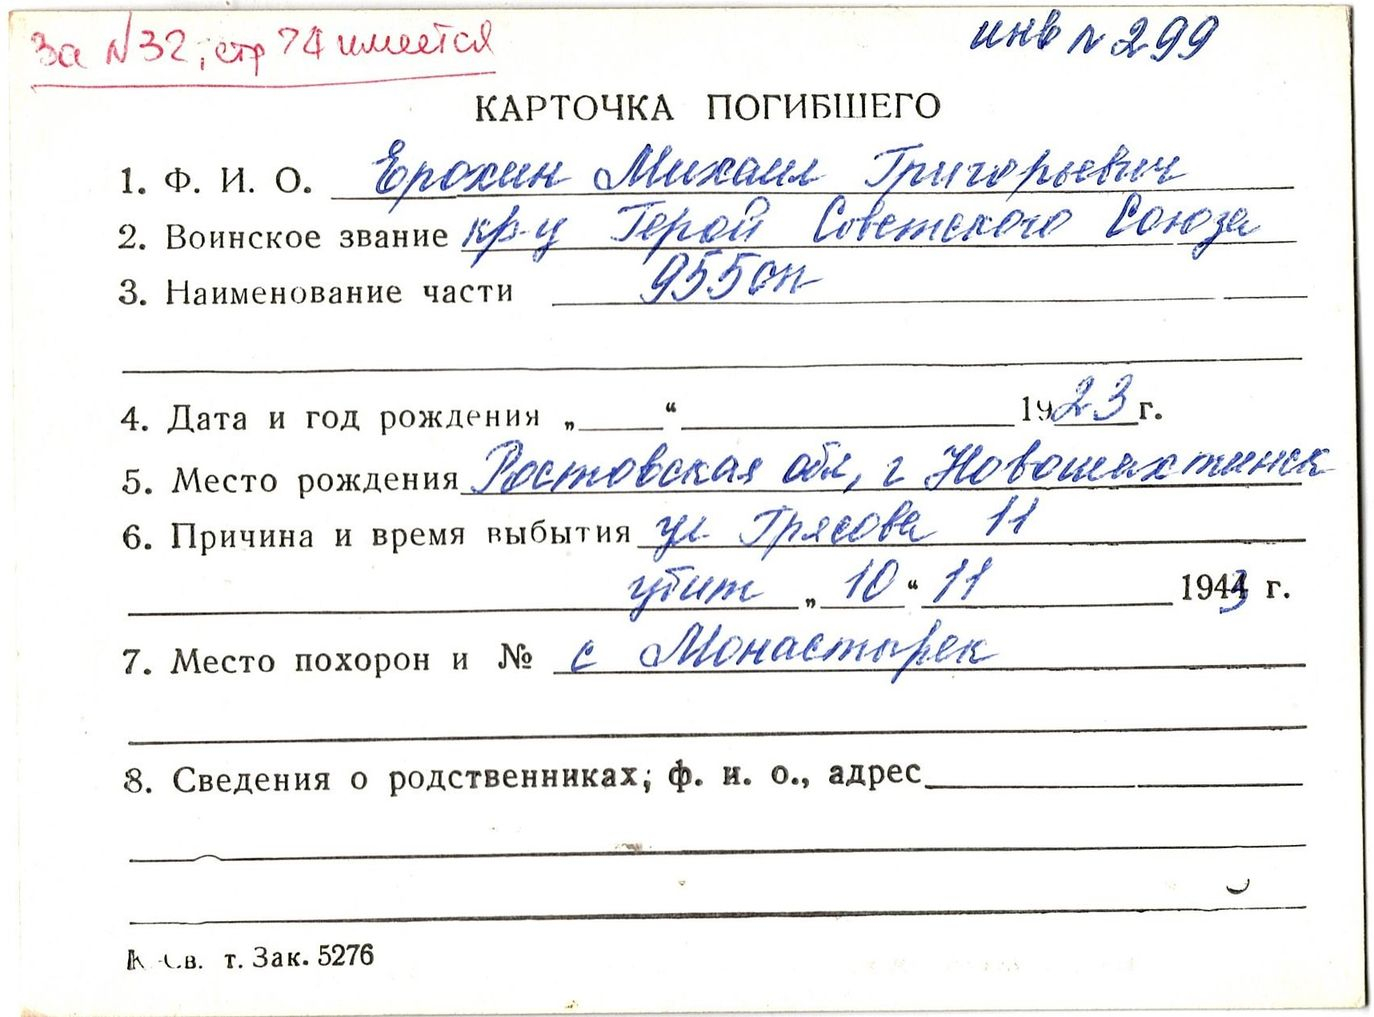 За N32, стр 74 имеется
инв № 299
КАРТОЧКА ПОГИБШЕГО
1. Ф. И. О. Ерохин Михаил Григорьевич
2. Воинское звание кр-ц Герой Советского Союза
3. Наименование части 955 сп
4. Дата и год рождения „ “ 1923 г.
5. Место рождения Ростовская обл, г Новошахтинск
6. Причина и время выбытия ул Грясова 11
убит „10“ 11 1943 г.
7. Место похорон и № с Монастырек
8. Сведения о родственниках; ф. и. о., адрес
т. Зак. 5276